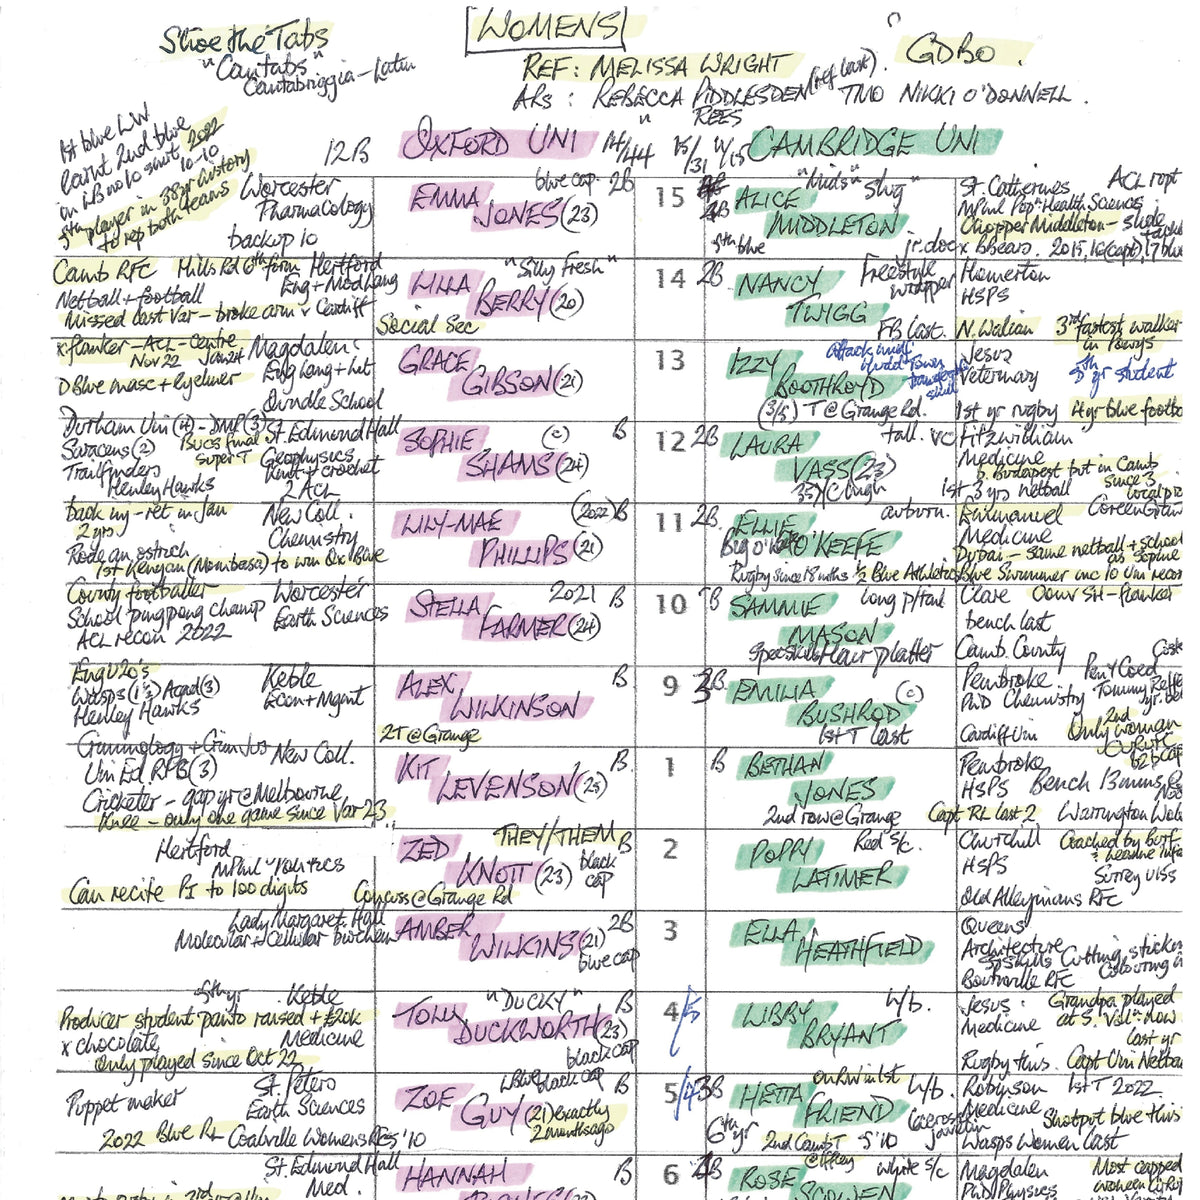 Shoe the Tabs
"Cantabs"
Cantabriggia - Latin
WOMENS
GDBO
REF: MELISSA WRIGHT
ARs: REBECCA PIDDLESDEN (ref last). TMO NIKKI O'DONNELL.
" REES
12B OXFORD UNI 14/44 15/31 CAMBRIDGE UNI
1st blue LW
learnt 2nd blue
on LB no 10 smit 2022
10-10
5th player in 38yr history
to rep both teams
Worcester
Pharmacology
backup 10
blue cap 2B
EMMA
JONES (23)
15
"Mids" "Slug"
ALICE
MIDDLETON
5th blue jr. doc
St. Catherines ACL rupt
MPhil Pop. Health Sciences
Chopper Middleton - slide tackle
x BBears. 2015, 16 (capt), 17 blue
Camb RFC Mills Rd 6th form Hertford
Netball + football Eng + Mod Lang
Missed last Var - broke arm v Cardiff
LILLA "Silly Fresh"
BERRY (20)
Social Sec
14 2B
NANCY Freestyle
TWIGG
FB last.
Homerton
HSPS
N. Walian 3rd fastest walker
in Powys
x flanker - ACL - centre Magdalen
Nov 22 Jan 24 Eng Lang + Lit
D Blue masc + eyeliner Oundle School
GRACE
GIBSON (21)
13
IZZY
BOOTHROYD
(3/5) T @ Grange Rd.
Jesus
Veterinary 5th yr student
1st yr rugby 4yr blue footb
Durham Uni (4) - DMP (3) St. Edmund Hall
Saracens (2) BUCS final Geophysics
Trailfinders Super T Knit + crochet
Henley Hawks 2 ACL
SOPHIE (c) B
SHAMS (24)
12 2B
LAURA tall. vc
VASS (23)
Fitzwilliam
Medicine
b. Budapest but in Camb
since 3
1st 3 yrs netball
back inj - ret in Jan New Coll.
2 yrs Chemistry
Rode an ostrich
1st Kenyan (Mombasa) to win Ox Blue
LILY-MAE (2022) B
PHILLIPS (21)
11 2B
ELLIE auburn.
O'KEEFE
Rugby since 18 mths 1/2 Blue Athletics
Emmanuel
Medicine
Dubai - same netball + school
as Sophie
Blue Swimmer inc 10 Uni recor
County footballer Worcester
School ping pong champ Earth Sciences
ACL recon 2022
STELLA 2021 B
FARMER (24)
10 B
SAMMIE long p/tail
MASON
Spec skills Hair plaitter
Clare Conv SH - flanker
bench last
Camb. County
Eng U20's
Wasps (1½) Acad (3) Keble
Henley Hawks Econ + Mgmt
ALEX B
WILKINSON
2T @ Grange
9 3B
EMILIA (c)
BUSHROD
1st T last
Pembroke
PhD Chemistry
Cardiff Uni 2nd
Only woman
b2b cap
Criminology + Crim Jus New Coll.
Uni Ed RFB (3)
Cricketer - gap yr @ Melbourne
Knee - only one game since Var 23
KIT B
LEVENSON (25)
1 B
BETHAN
JONES
2nd row @ Grange Capt RL last 2
Pembroke
HSPS Bench 13 mins
Warrington Wol
Hertford
MPhil Politics
Can recite PI to 100 digits
ZED THEY/THEM B
KNOTT (23) black
cap
Concuss @ Grange Rd
2
POPPY Red s/c.
LATIMER
Churchill Coached by
HSPS
Surrey U15s
Old Alleynians RFC
Lady Margaret Hall
Molecular + Cellular biochem
AMBER 2B
WILKINS (21)
blue cap
3
ELLA
HEATHFIELD
Queens
Architecture
Sp Skills Cutting, sticking
Colouring in
Bournville RFC
5th yr Keble
Producer student panto raised + £20k
x chocolate Medicine
Only played since Oct 22
"DUCKY" B
DUCKWORTH (23)
black cap
4/5
LIBBY h/b.
BRYANT
Jesus. Grandpa played
Medicine
last yr
Rugby this. Capt Uni Netba
St. Peters
Puppet maker Earth Sciences
2022 Blue RL Coalville Women RFC 5'10
black cap
ZOE B
GUY (21) exactly
2 months ago
5/4 3B
HETTA h/b
FRIEND
lacrosse
javelin
6th yr 2nd Camb T 5'10
@ Iffley
Robinson 1st T 2022.
Medicine
Shotput blue this
Wasps Women last
St Edmund Hall
Med.
HANNAH B
6
ROSE white s/c
SCOWEN
Magdalen Most capped